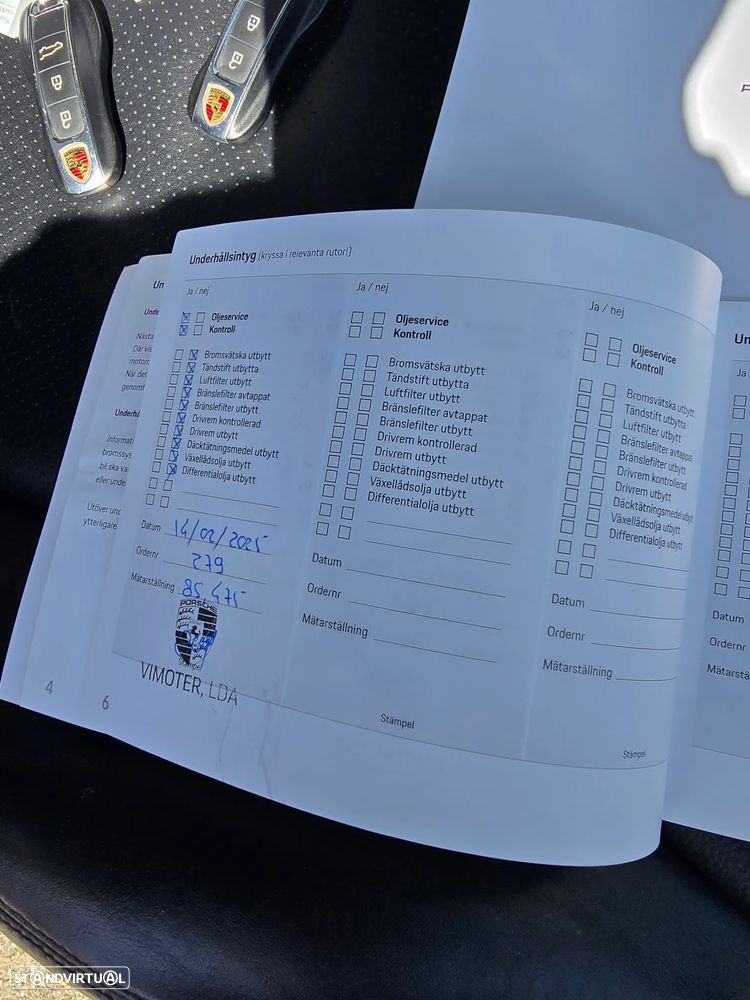 Underhållsintyg (kryssa i relevanta rutor!)
Ja / nej
Oljeservice
Kontroll
Bromsvätska utbytt
Tändstift utbytta
Luftfilter utbytt
Bränslefilter avtappat
Bränslefilter utbytt
Drivrem kontrollerad
Drivrem utbytt
Däcktätningsmedel utbytt
Växellådsolja utbytt
Differentialolja utbytt
Datum 14/02/2025
Ordernr 279
Mätarställning 85 475
PORSCHE
Stämpel
VIMOTER, LDA
Ja / nej
Oljeservice
Kontroll
Bromsvätska utbytt
Tändstift utbytta
Luftfilter utbytt
Bränslefilter avtappat
Bränslefilter utbytt
Drivrem kontrollerad
Drivrem utbytt
Däcktätningsmedel utbytt
Växellådsolja utbytt
Differentialolja utbytt
Datum
Ordernr
Mätarställning
Stämpel
Ja / nej
Oljeservice
Kontroll
Bromsvätska utbytt
Tändstift utbytta
Luftfilter utbytt
Bränslefilter avtappat
Bränslefilter utbytt
Drivrem kontrollerad
Drivrem utbytt
Däcktätningsmedel utbytt
Växellådsolja utbytt
Differentialolja utbytt
Datum
Ordernr
Mätarställning
Stämpel
Datum
Ordernr
4
6
STANDVIRTUAL